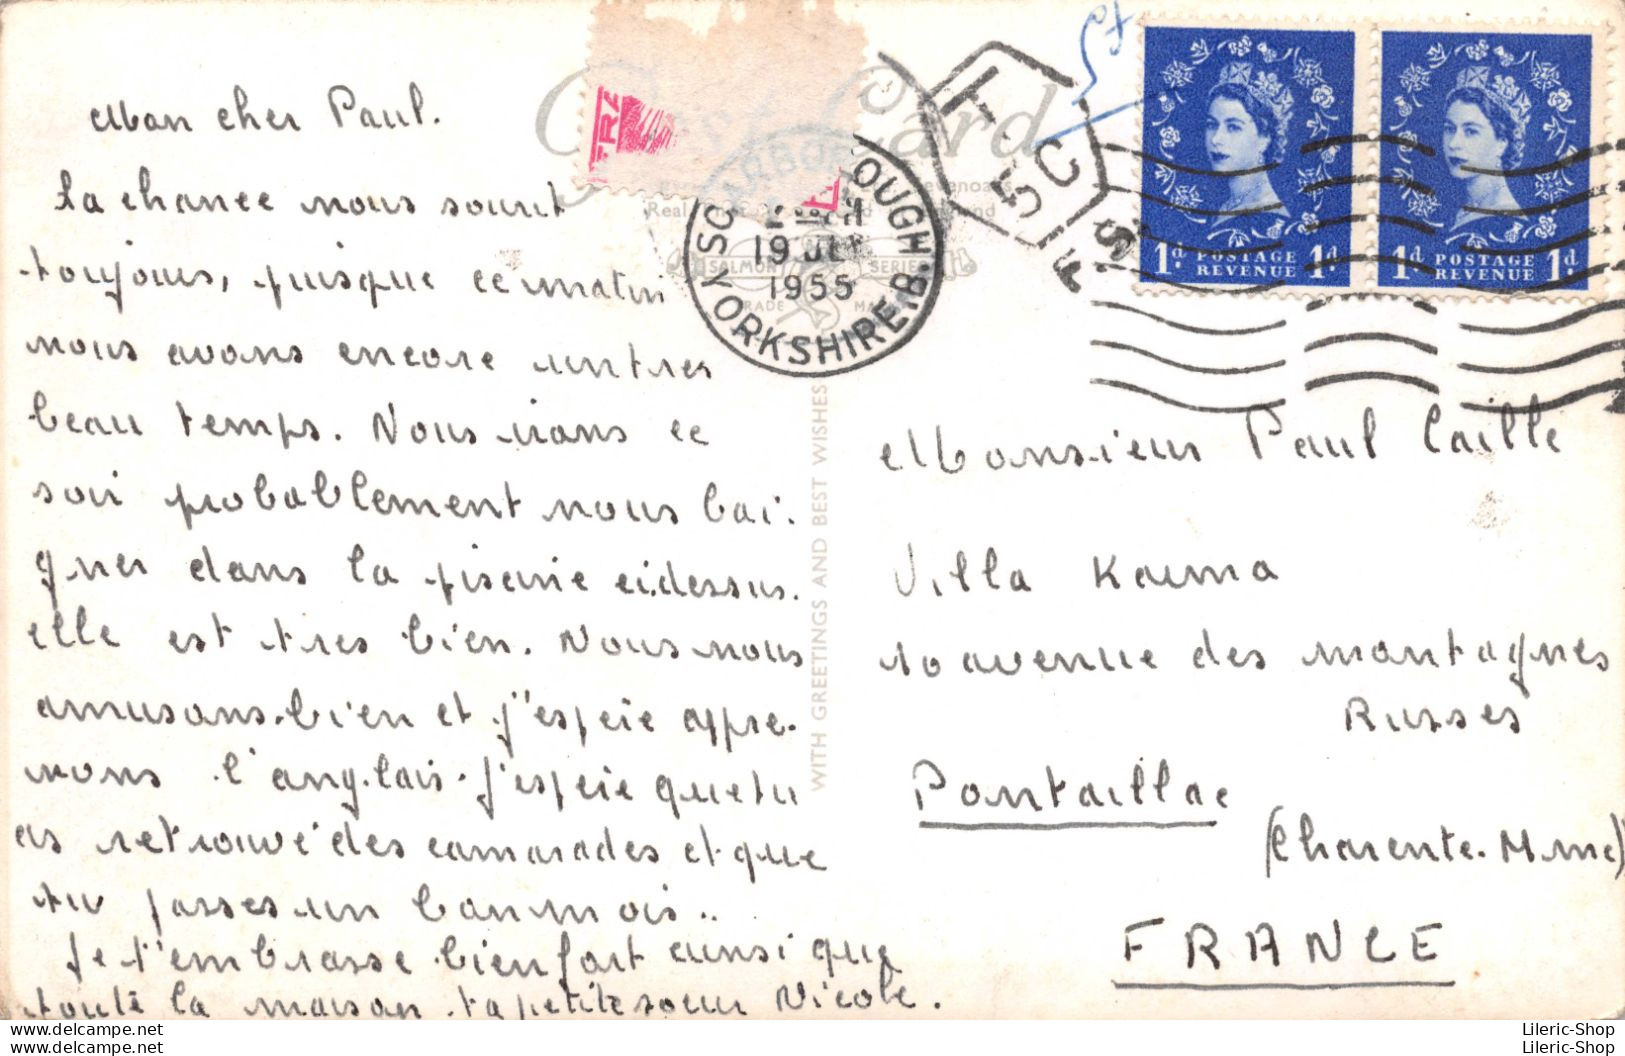 Mon cher Paul.
la chance nous sourit
toujours, puisque ce matin
nous avons encore un tres
beau temps. Nous irons ce
soir probablement nous bai.
gner dans la piscine ci.dessus.
elle est tres bien. Nous nous
amusons.bien et j'espere appre.
nons l'anglais. j'espere que tu
as retrouvé des camarades et que
tu passes un bon mois..
Je t'embrasse bien fort ainsi que
toute la maison ta petite soeur Nicole.
Card
Sevenoaks
Real
SALMON SERIES
TRADE
SCARBOROUGH
19 JLY
1955
YORKSHIRE.B.
H
5C
F
S
1d POSTAGE REVENUE 1d
1d POSTAGE REVENUE 1d
WITH GREETINGS AND BEST WISHES
Monsieur Paul Caille
Villa Kaema
10 avenue des montagnes
Russes
Pontaillac
(Charente. Mme)
FRANCE
Lileric-Shop
Lileric-Shop
Lileric-Shop
Lileric-Shop